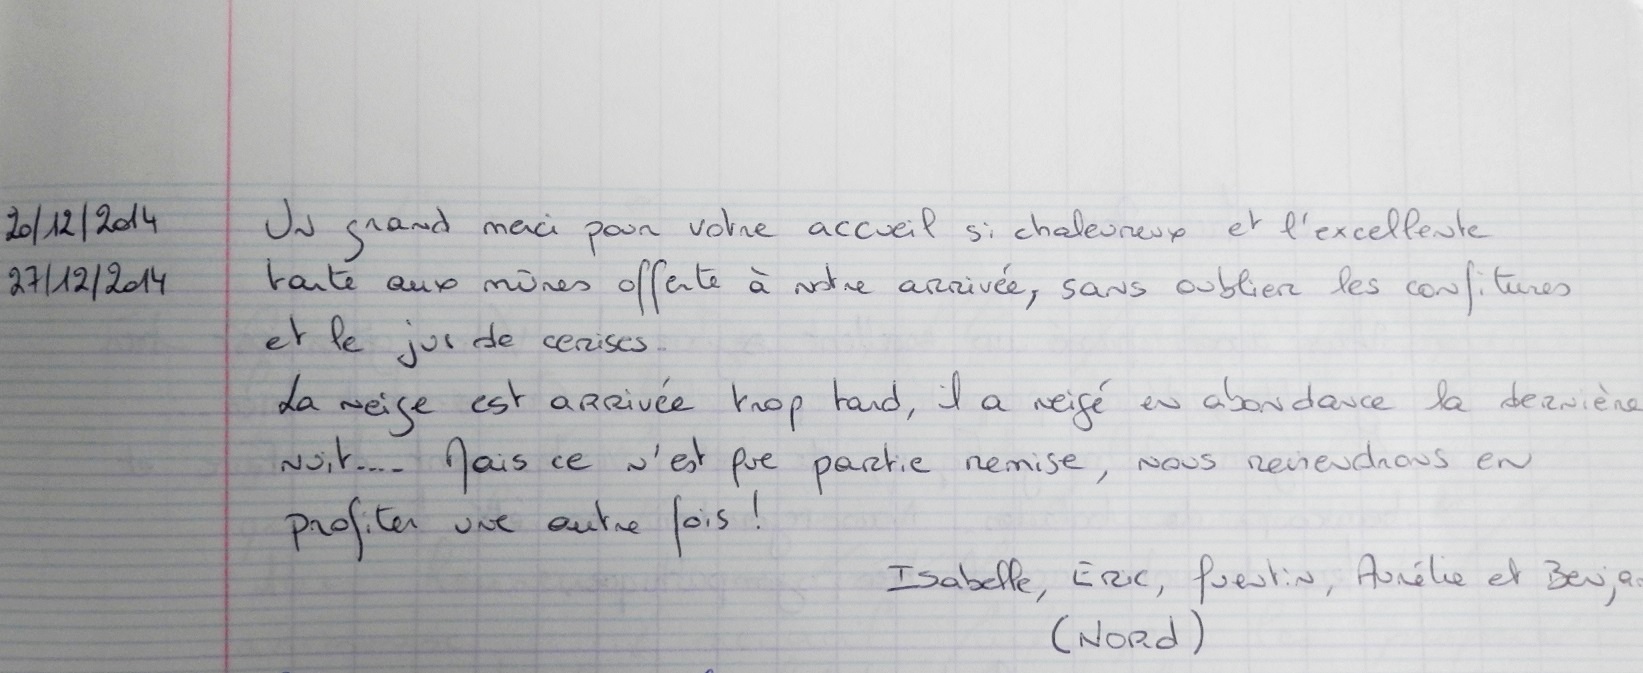 20/12/2014 Un grand merci pour votre accueil si chaleureux et l'excellente
27/12/2014 tarte aux mûres offerte à notre arrivée, sans oublier les confitures
et le jus de cerises.
La neige est arrivée trop tard, il a neigé en abondance la dernière
nuit.... Mais ce n'est que partie remise, nous reviendrons en
profiter une autre fois !
Isabelle, Eric, Quentin, Aurélie et Benja
(NORd)